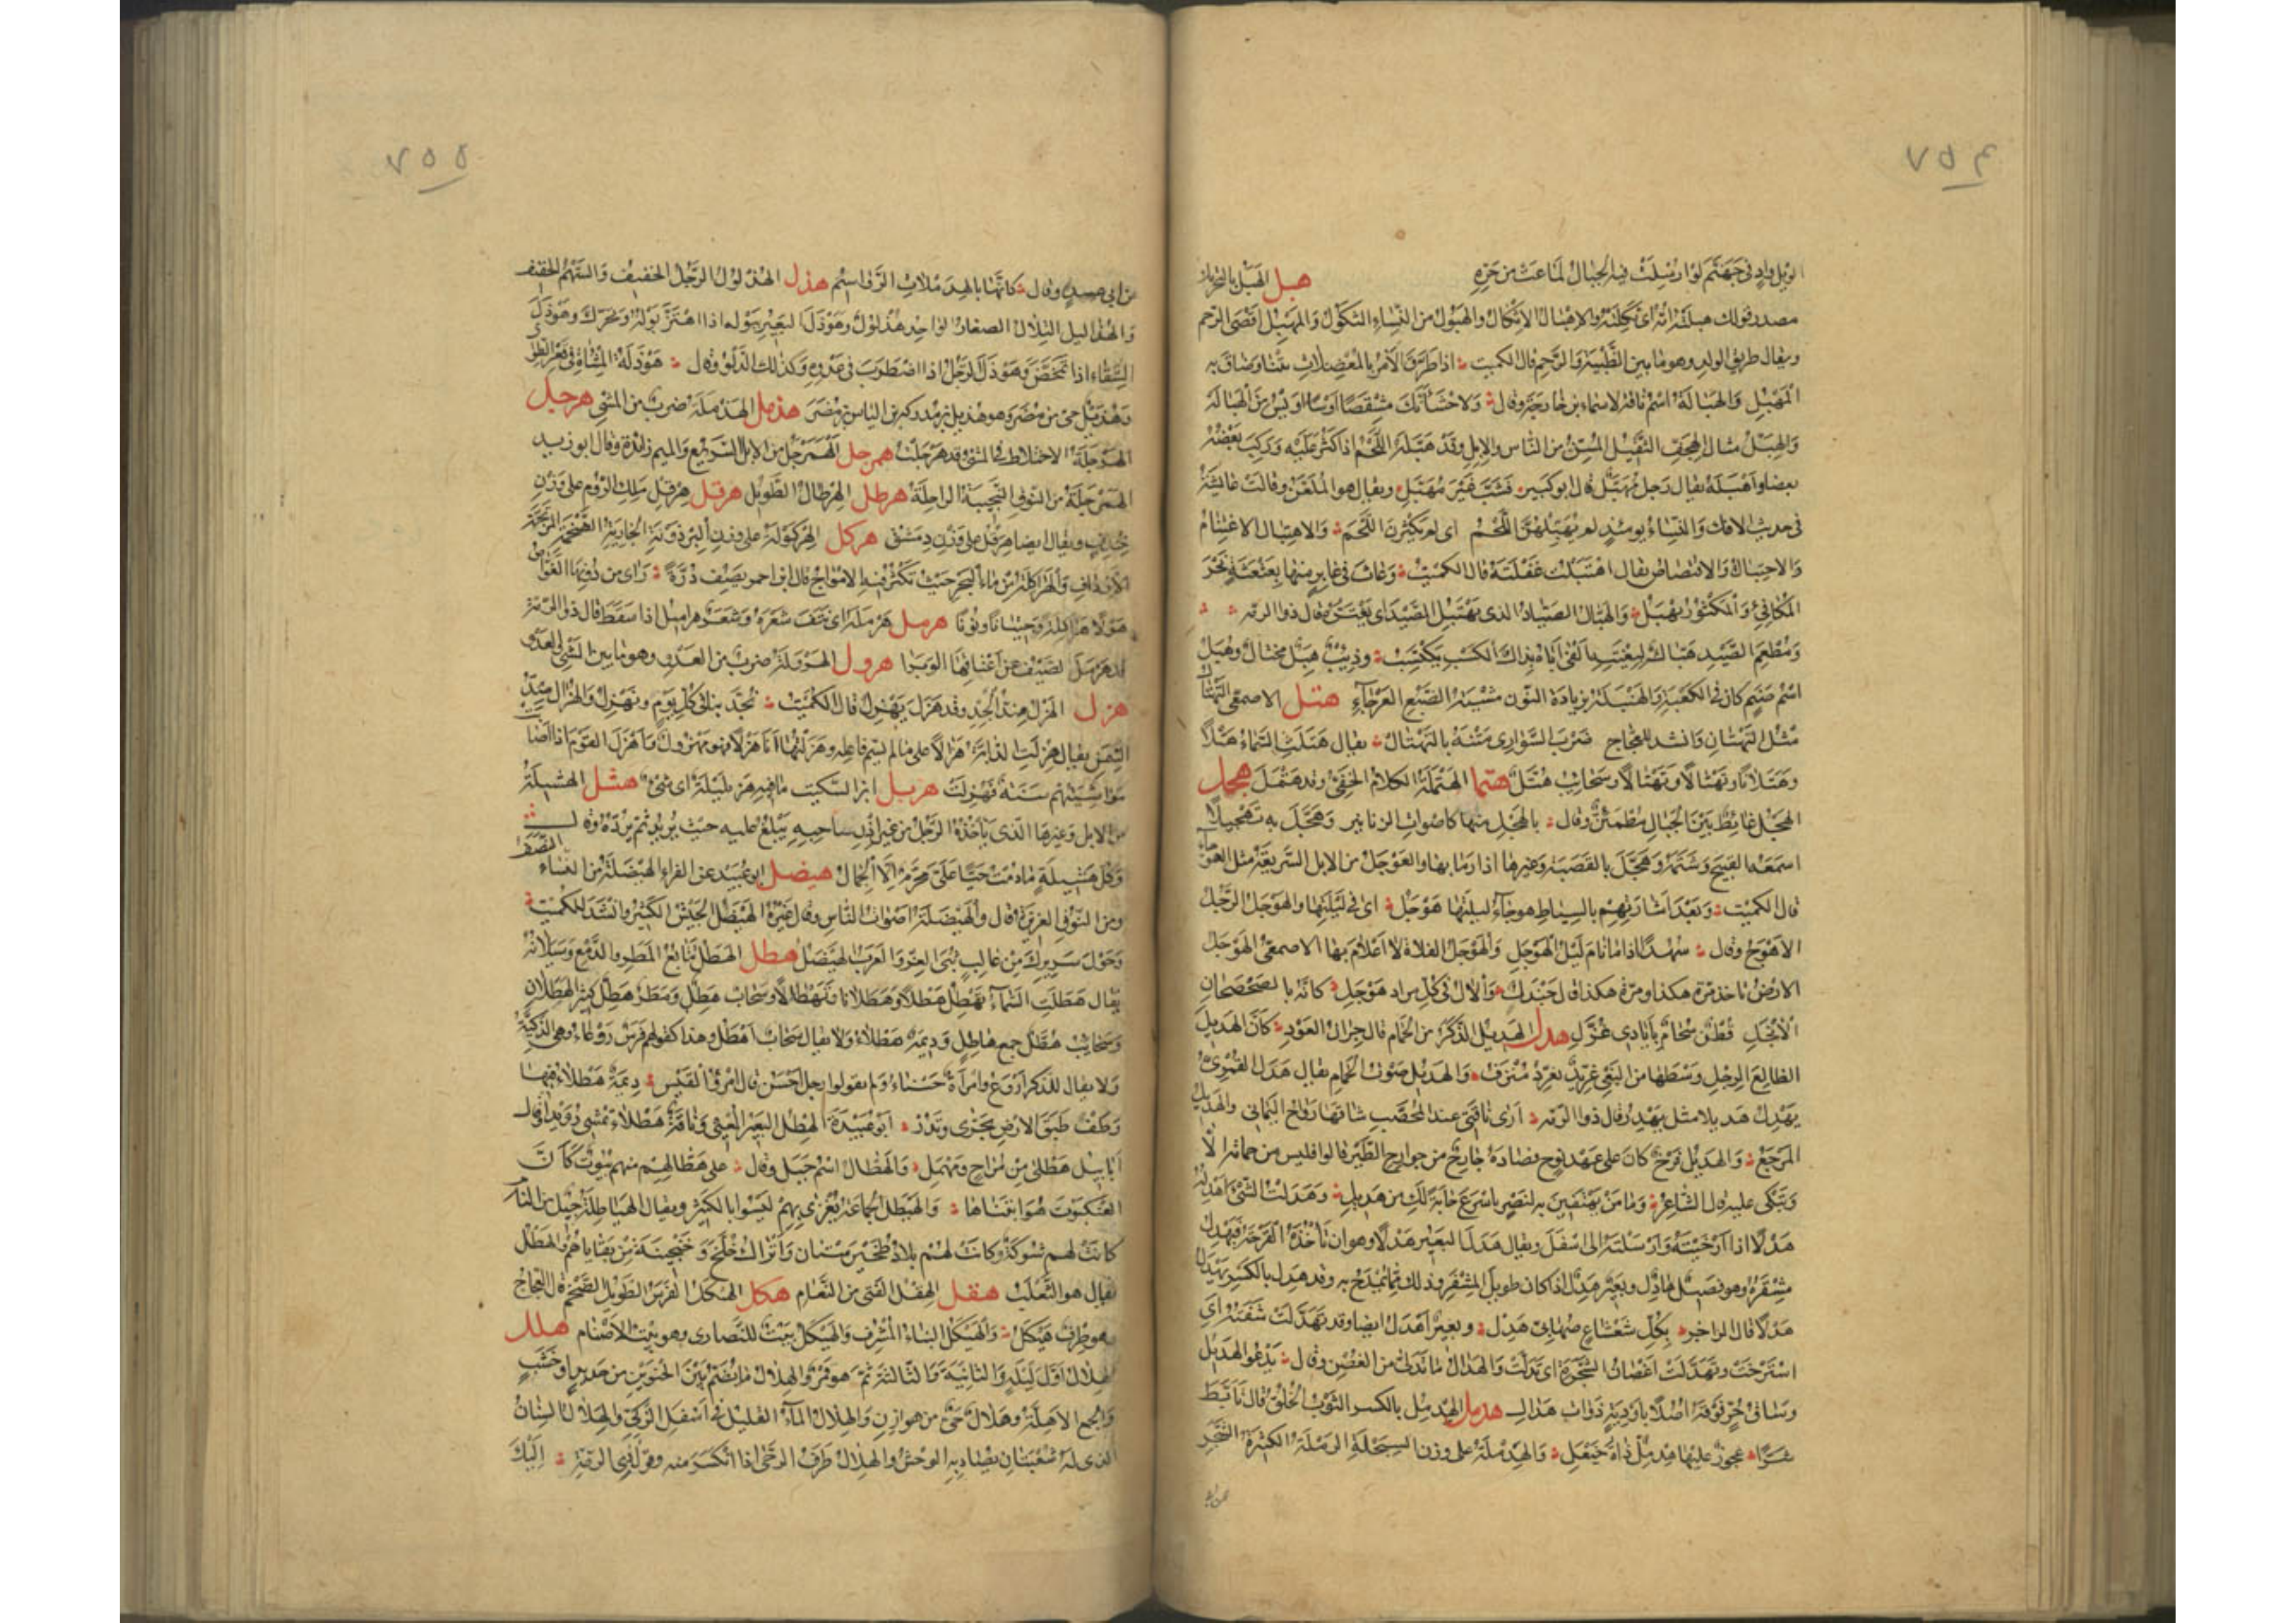 ٧٥٤
الويل واد في جهنم لو ارسلت فيه الجبال لماعت من حره هبل الهبل بالتحريك
مصدر قولك هبلته امه اي ثكلته والاهبال الاثكال والهبول من النساء الثكول والمهبل اقصى الرحم
ويقال طريق الولد وهو ما بين الظبية والرحم قال الكميت اذا طرق الامر بالمعضلات يتنا وضاق به
المهبل والهبالة اسم ناقة لاسماء بن خارجة وقال ولاحشانك مشقصا اوسا اويس من الهبالة
والهبل مثال الهجف الثقيل المسن من الناس والابل وقد هبله اللحم اذا كثر عليه وركب بعضه
بعضا واهبله يقال رجل مهبل قال ابو كبير فشب غير مهبل ويقال هو الملعن وقالت عائشة
في حديث الافك والنساء يومئذ لم يهبلهن اللحم اي لم يكثرن اللحم والاهتبال الاغتنام
والاحتيال والاقتصاص يقال اهتبلت غفلته قال الكميت وعاث في غابر منها بعثعثة نحر
المكافئ والمكثور يهتبل والهبال الصياد الذي يهتبل الصيد اي يغتره قال ذو الرمة
ومطعم الصيد هبال لبغيته الفى اباه بذاك الكسب يكتسب وذئب هبل محتال وهبل
اسم صنم كان في الكعبة والهنبلة بزيادة النون مشية الضبع العرجاء هتل الاصمعي التهتال
مثل التهتان وانشد للعجاج ضرب السواري متنه بالتهتال يقال هتلت السماء هتلا
وهتلانا وتهتالا وتهتالا وسحائب هتل هتمل الهتملة الكلام الخفي وقد هتمل هجل
الهجل غائط بين الجبال مطمئن وقال بالهجل منها كاصوات الزنابير وهجل به تهجيلا
اسمعه القبيح وشتمه وهجل بالقصبة وغيرها اذا رما بها والهوجل من الابل السريعة مثل الهوجاء
قال الكميت وبعد اشارتهم بالسياط هوجاء ليلتها هوجل اي في ليلتها والهوجل الرجل
الاهوج وقال سهدا اذا ما نام ليل الهوجل والهوجل الفلاة لا اعلام بها الاصمعي الهوجل
الارض تاخذ مرة هكذا ومرة هكذا قال جندل والآل في كل مراد هوجل كانه بالصحصحان
الانجل قطن سخام بايادي غزل هدل الهديل الذكر من الحمام قال جران العود كان الهديل
الظالع الرجل وسطها من البغي شريب يغرد منزف والهديل صوت الحمام يقال هدل القمري
يهدل هديلا مثل يهدر قال ذو الرمة ارى ناقتي عند المحصب شاقها رواح اليماني والهديل
المرجع والهديل فرخ كان على عهد نوح فصاده جارح من جوارح الطير قالوا فليس من حمامة الا
وتبكي عليه قال الشاعر وما من تهتفين به لنصر باسرع جابة لك من هديل وهدلت الشئ اهدله
هدلا اذا ارخيته وارسلته الى اسفل ويقال هدل البعير هدلا وهو ان تاخذه القرحة فيهدل
مشفره وهو فصيل هادل وبعير هدل اذا كان طويل المشفر وذلك مما يمدح به وقد هدل بالكسر يهدل
هدلا قال الراجز بكل شعشاع صهابي هدل وبعير اهدل ايضا وقد تهدلت شفته اي
استرخت وتهدلت اغصان الشجرة اي تدلت والهدال ما تدلى من الغصن وقال يدعو الهديل
وساق حر فوقه اصلا باودية ذوات هدال هدمل الهدمل بالكسر الثوب الخلق قال تابط
شرا عجوز عليها هدمل ذات خيعل والهدملة على وزن السبحلة الرملة الكثيرة الشجر
٧٥٥
عن ابي عبيد وقال كانها بالهدملات الرواسيم هذل الهذلول الرجل الخفيف والسهم الخفيف
والهذاليل التلال الصغار الواحد هذلول وهوذل البعير ببوله اذا اهتز بوله وتحرك وهوذل
السقاء اذا تمخض وهوذل الرجل اذا اضطرب في عدوه وكذلك الدلو وقال هوذلة المشآة في قعر الطوي
وهذيل حي من مضر وهو هذيل بن مدركة بن الياس بن مضر هذمل الهذملة ضرب من المشي هرجل
الهرجلة الاختلاط في المشي وقد هرجلت همرجل الهمرجل من الابل السريع والميم زائدة وقال ابو زيد
الهمرجلة من النوق النجيبة الراحلة هرطل الهرطال الطويل هرقل هرقل ملك الروم على وزن
خندف ويقال ايضا هرقل على وزن دمشق هركل الهركولة على وزن البرذونة الجارية الضخمة المرتجة
الارداف والهراكلة من ماء البحر حيث تكثر فيه الامواج قال ابن احمر يصف درة وراى من دونها الغواص
هولا هراكلة وحيتانا ونونا هرمل هرمله اي نتف شعره وشعر هراميل اذا سقط قال ذو الرمة
قد هرمل الصيف عن اعناقها الوبرا هرول الهرولة ضرب من العدو وهو ما بين المشي والعدو
هزل الهزل ضد الجد وقد هزل يهزل قال الكميت تجد بنا في كل يوم وتهزل والهزال ضد
السمن يقال هزلت الدابة هزالا على ما لم يسم فاعله وهزلتها انا هزلا فهو مهزول واهزل القوم اذا اصابت
مواشيهم سنة فهزلت هزبل ابن السكيت ما فيه هزبليلة اي شئ هشل الهشيلة
من الابل وغيرها الذي ياخذه الرجل من غير اذن صاحبه يبلغ عليه حيث يريد ثم يرده وقال
وكل هشيلة ما دمت حيا علي محرم الا الجمال هيضل ابو عبيد عن الفراء الهيضلة من النساء النصف
ومن النوق الغزيرة قال والهيضلة اصوات الناس وقال غيره الهيضل الجيش الكثير وانشد للكميت
وحول سريرك من غالب ثبى العز والعرب الهيضل هطل الهطل تتابع المطر والدمع وسيلانه
يقال هطلت السماء تهطل هطلا وهطلانا وتهطالا وسحاب هطل ومطر هطل كثير الهطلان
وسحائب هطل جمع هاطل وديمة هطلاء ولا يقال سحاب اهطل وهذا كقولهم فرس روعاء وهي الذكية
ولا يقال للذكر اروع وامراة حسناء ولم يقولوا رجل احسن قال امرؤ القيس ديمة هطلاء فيها
وطف طبق الارض تحرى وتدر ابو عبيدة الهطل البعير المعيي وناقة هطلاء تمشي رويدا قال
ابابيل هطلى من مراح ومهمل والهطال اسم جبل وقال على هطالهم منهم بيوت كان
العنكبوت هو ابتناها والهيطل الجماعة يغزى بهم ليسوا بالكثير ويقال الهياطلة جيل من الناس
كانت لهم شوكة وكانت لهم بلاد طخيرستان واتراك خلج وخنجينة من بقاياهم والهيطل
يقال هو الثعلب هقل الهقل الفتى من النعام هكل الهيكل الفرس الطويل الضخم قال العجاج
هيكل والهيكل البناء المشرف والهيكل بيت للنصارى وهو بيت الاصنام هلل
الهلال اول ليلة والثانية والثالثة ثم هو قمر والهلال ما يضم بين الحنوين من حديد او خشب
والجمع الاهلة وهلال حي من هوازن والهلال الماء القليل في اسفل الركي والهلال السنان
الذي له شعبتان يصاد به الوحش والهلال طرف الرحى اذا انكسر منه وهو قول ذي الرمة اليك